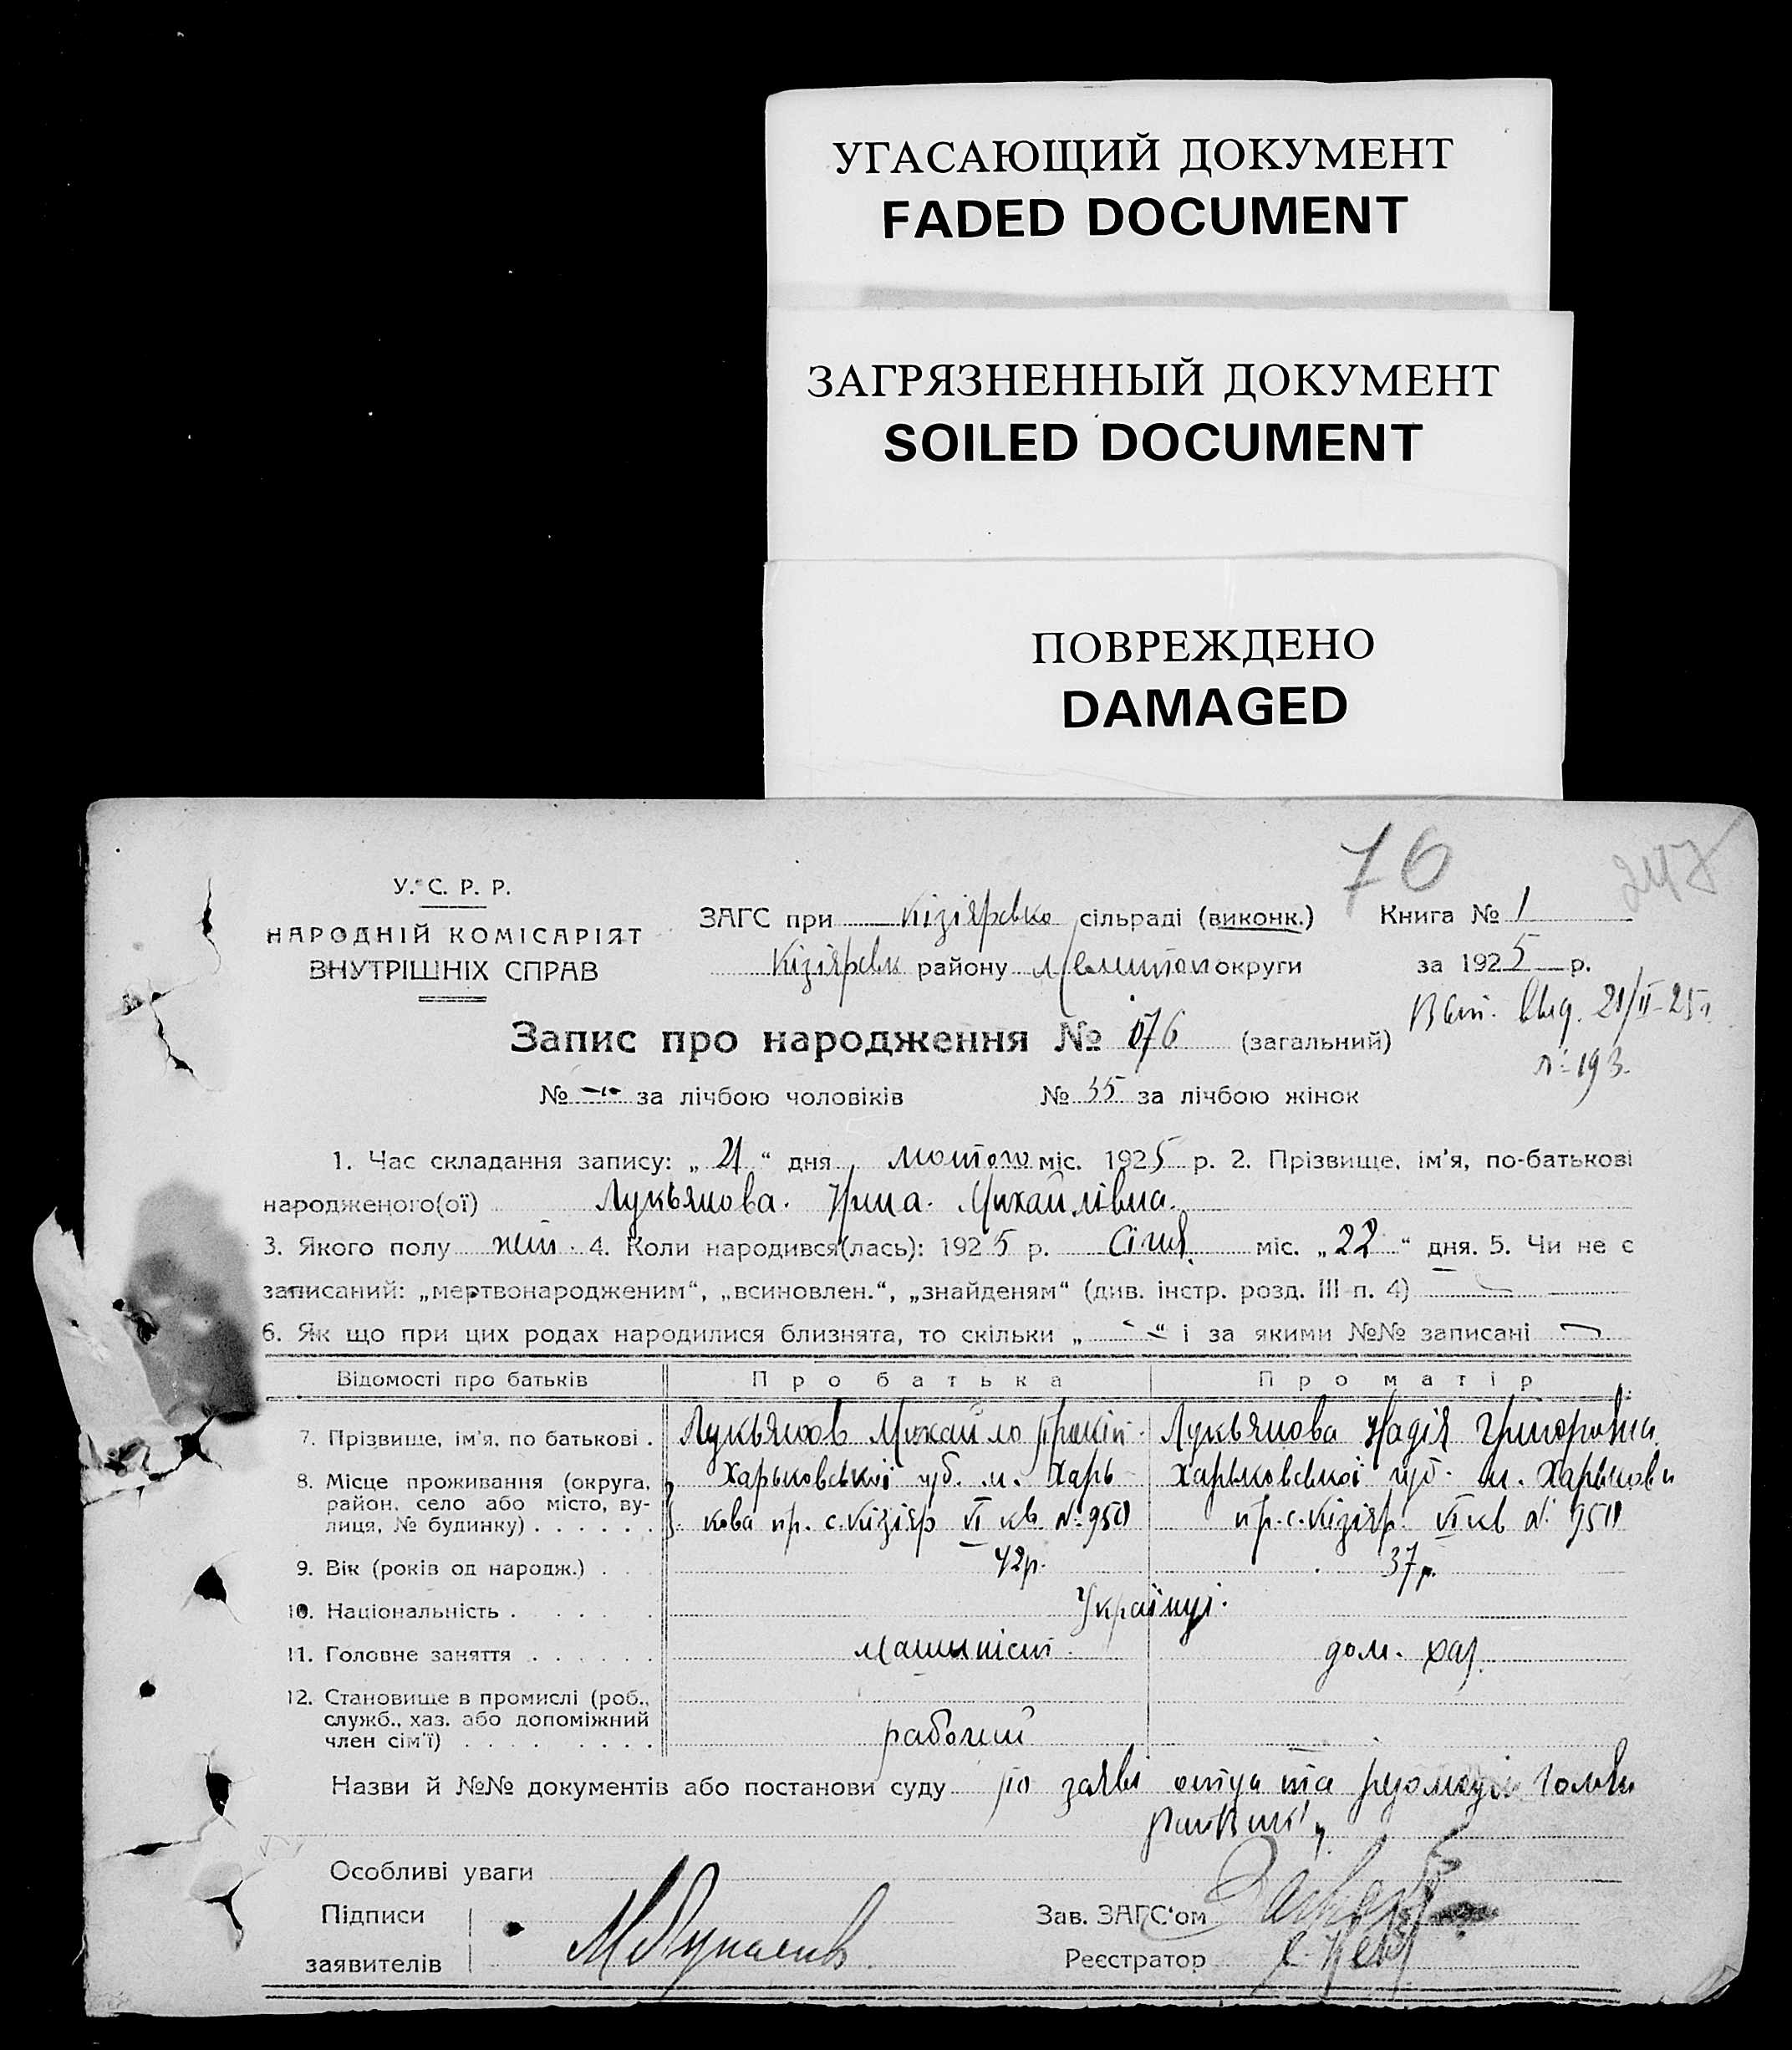 УГАСАЮЩИЙ ДОКУМЕНТ
FADED DOCUMENT
ЗАГРЯЗНЕННЫЙ ДОКУМЕНТ
SOILED DOCUMENT
ПОВРЕЖДЕНО
DAMAGED
76 247
У. С. Р. Р.
НАРОДНІЙ КОМІСАРІЯТ
ВНУТРІШНІХ СПРАВ
ЗАГС при Кізіярсько сільраді (виконк.) Книга № 1
Кізіярськ району Мелитоп округи за 1925 р.
выд. 21/II-25
№ 193.
Запис про народження № 76 (загальний)
№ за лічбою чоловіків № 35 за лічбою жінок
1. Час складання запису: „21“ дня лютого міс. 1925 р. 2. Прізвище, ім'я, по-батькові
народженого(ої) Лукьянова. Нина. Михайлівна.
3. Якого полу жін. 4. Коли народився(лась): 1925 р. Січня міс. „22“ дня. 5. Чи не є
записаний: „мертвонародженим“, „всиновлен.“, „знайденям“ (див. інстр. розд. III п. 4)
6. Як що при цих родах народилися близнята, то скільки „ “ і за якими №№ записані
Відомості про батьків Про батька Про матір
7. Прізвище, ім'я, по батькові . Лукьянов Михайло Лукьянова Надія Григоровна
8. Місце проживання (округа, район, село або місто, вулиця, № будинку) . . . . . . Харьковської губ. м. Харькова пр. с. Кізіяр VI кв № 950 Харьковської губ. м. Харькова пр. с. Кізіяр. VI кв № 950
9. Вік (років од народж.) . . 42р. 37р.
10. Національність . . . . . Українці.
11. Головне заняття . . . . . . машиніст. дом. хаз.
12. Становище в промислі (роб., служб., хаз. або допоміжний член сім'ї) . . . . . . . . . рабочий
Назви й №№ документів або постанови суду по заяві отца та
Особливі уваги
Підписи Зав. ЗАГС‘ом
заявителів Реєстратор